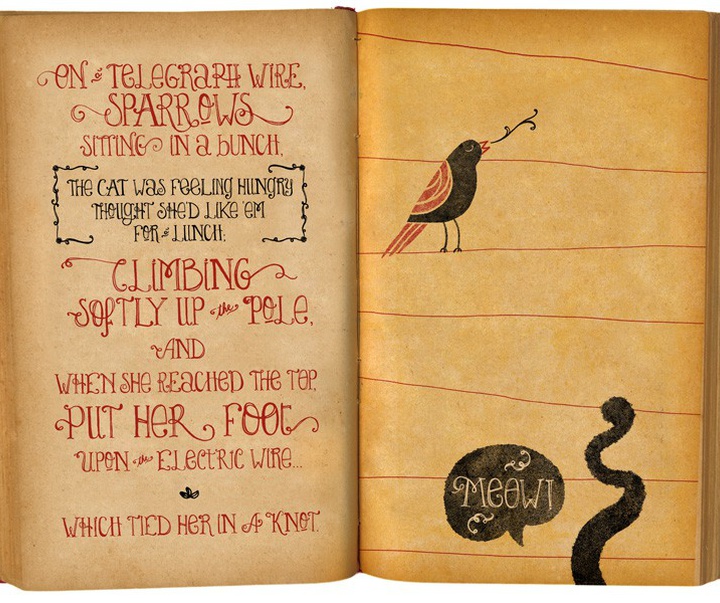 ON a TELEGRAPH WIRE,
SPARROWS
SITTING IN a bUNCH,
THE CAT WAS FEELING HUNGRY
THOUGHT SHE'D LIKE 'EM
FOR a LUNCH:
CLIMBING
SOFTLY UP the POLE,
AND
WHEN SHE REACHED THE TOP,
PUT HER FOOT
UPON the ELECTRIC WIRE...
WHICH TIED HER IN A KNOT.
MEOW!